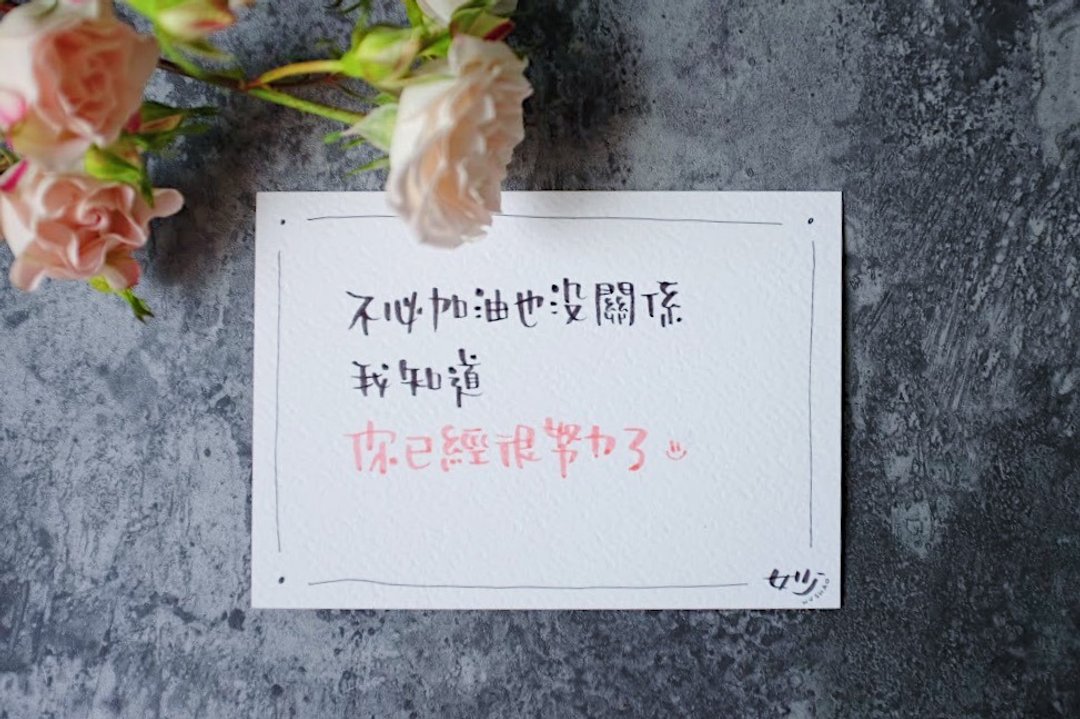 不必加油也沒關係
我知道
你已經很努力了
妙
NUSHAO